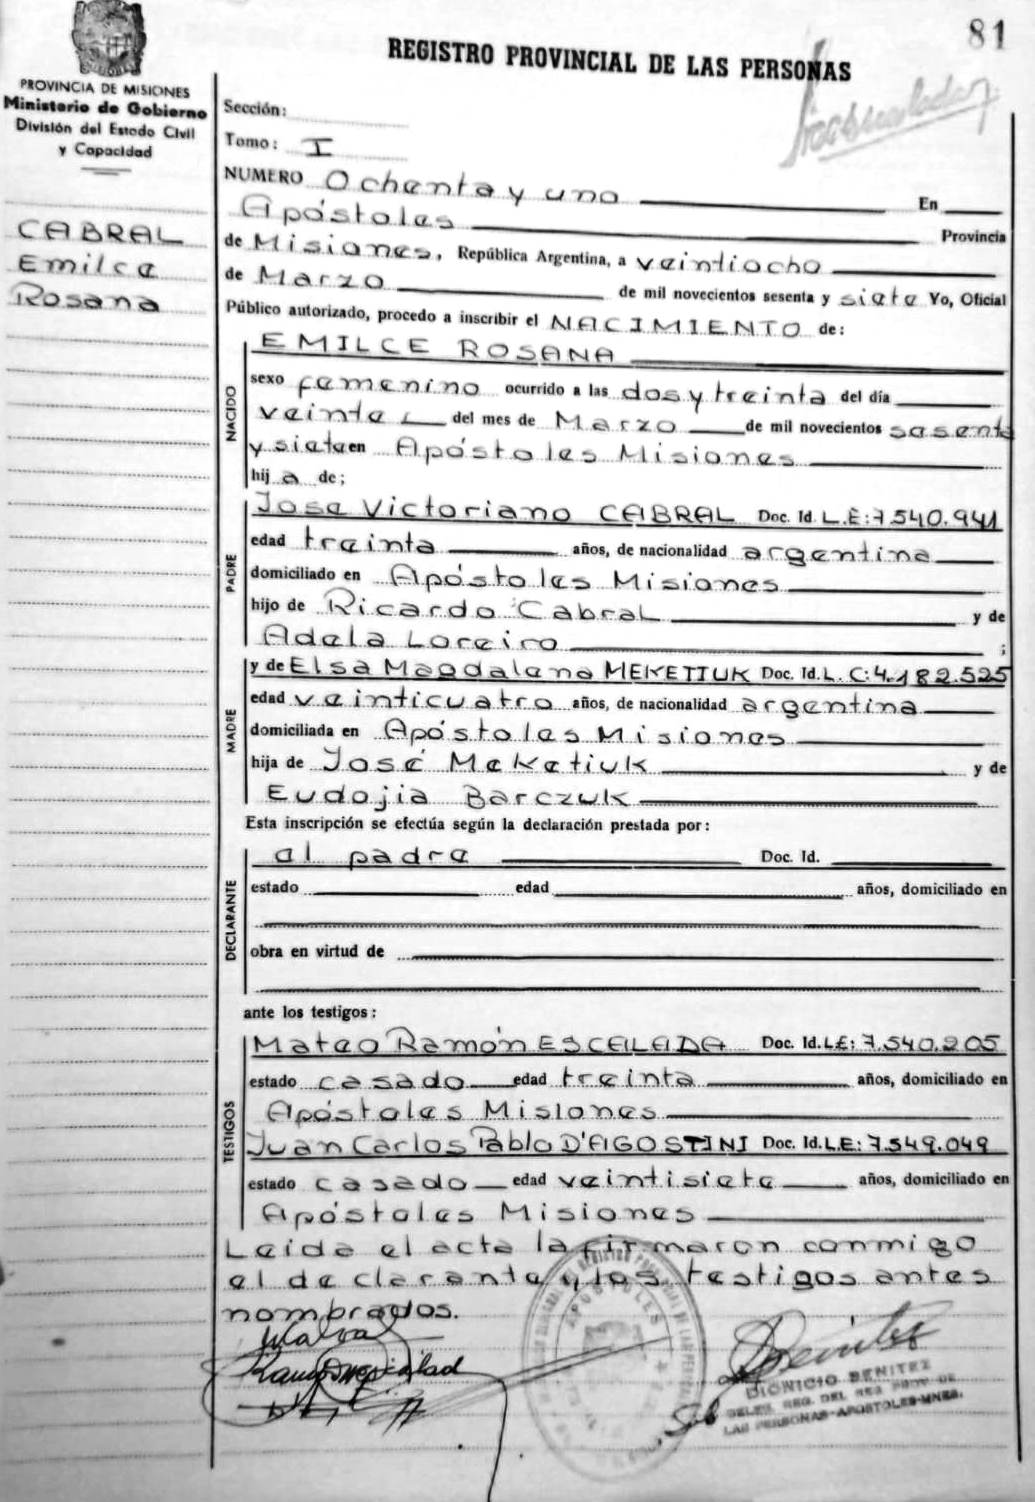 81
REGISTRO PROVINCIAL DE LAS PERSONAS
PROVINCIA DE MISIONES
Ministerio de Gobierno
División del Estado Civil
y Capacidad
CABRAL
Emilce
Rosana
Sección:
Tomo: I
NUMERO Ochenta y uno En
Apóstoles Provincia
de Misiones, República Argentina, a veintiocho
de Marzo de mil novecientos sesenta y siete Yo, Oficial
Público autorizado, procedo a inscribir el NACIMIENTO de:
NACIDO
EMILCE ROSANA
sexo femenino ocurrido a las dos y treinta del día
veinte del mes de Marzo de mil novecientos sesenta
y siete en Apóstoles Misiones
hija de;
PADRE
Jose Victoriano CABRAL Doc. Id. L.E:7.540.941
edad treinta años, de nacionalidad argentina
domiciliado en Apóstoles Misiones
hijo de Ricardo Cabral y de
Adela Loreiro ;
MADRE
y de Elsa Magdalena MEKETIUK Doc. Id. L.C:4.182.525
edad veinticuatro años, de nacionalidad argentina
domiciliada en Apóstoles Misiones
hija de José Meketiuk y de
Eudojia Barczuk
Esta inscripción se efectúa según la declaración prestada por:
DECLARANTE
el padre Doc. Id.
estado edad años, domiciliado en
obra en virtud de
ante los testigos:
TESTIGOS
Mateo Ramón ESCALADA Doc. Id. LE: 7.540.205
estado casado edad treinta años, domiciliado en
Apóstoles Misiones
Juan Carlos Pablo D'AGOSTINI Doc. Id. L.E: 7.549.049
estado casado edad veintisiete años, domiciliado en
Apóstoles Misiones
Leida el acta la firmaron conmigo
el declarante y los testigos antes
nombrados.
APOSTOLES
DIONICIO BENITEZ
DELEG. REG. DEL REG PROV DE
LAS PERSONAS-APOSTOLES-MNES.